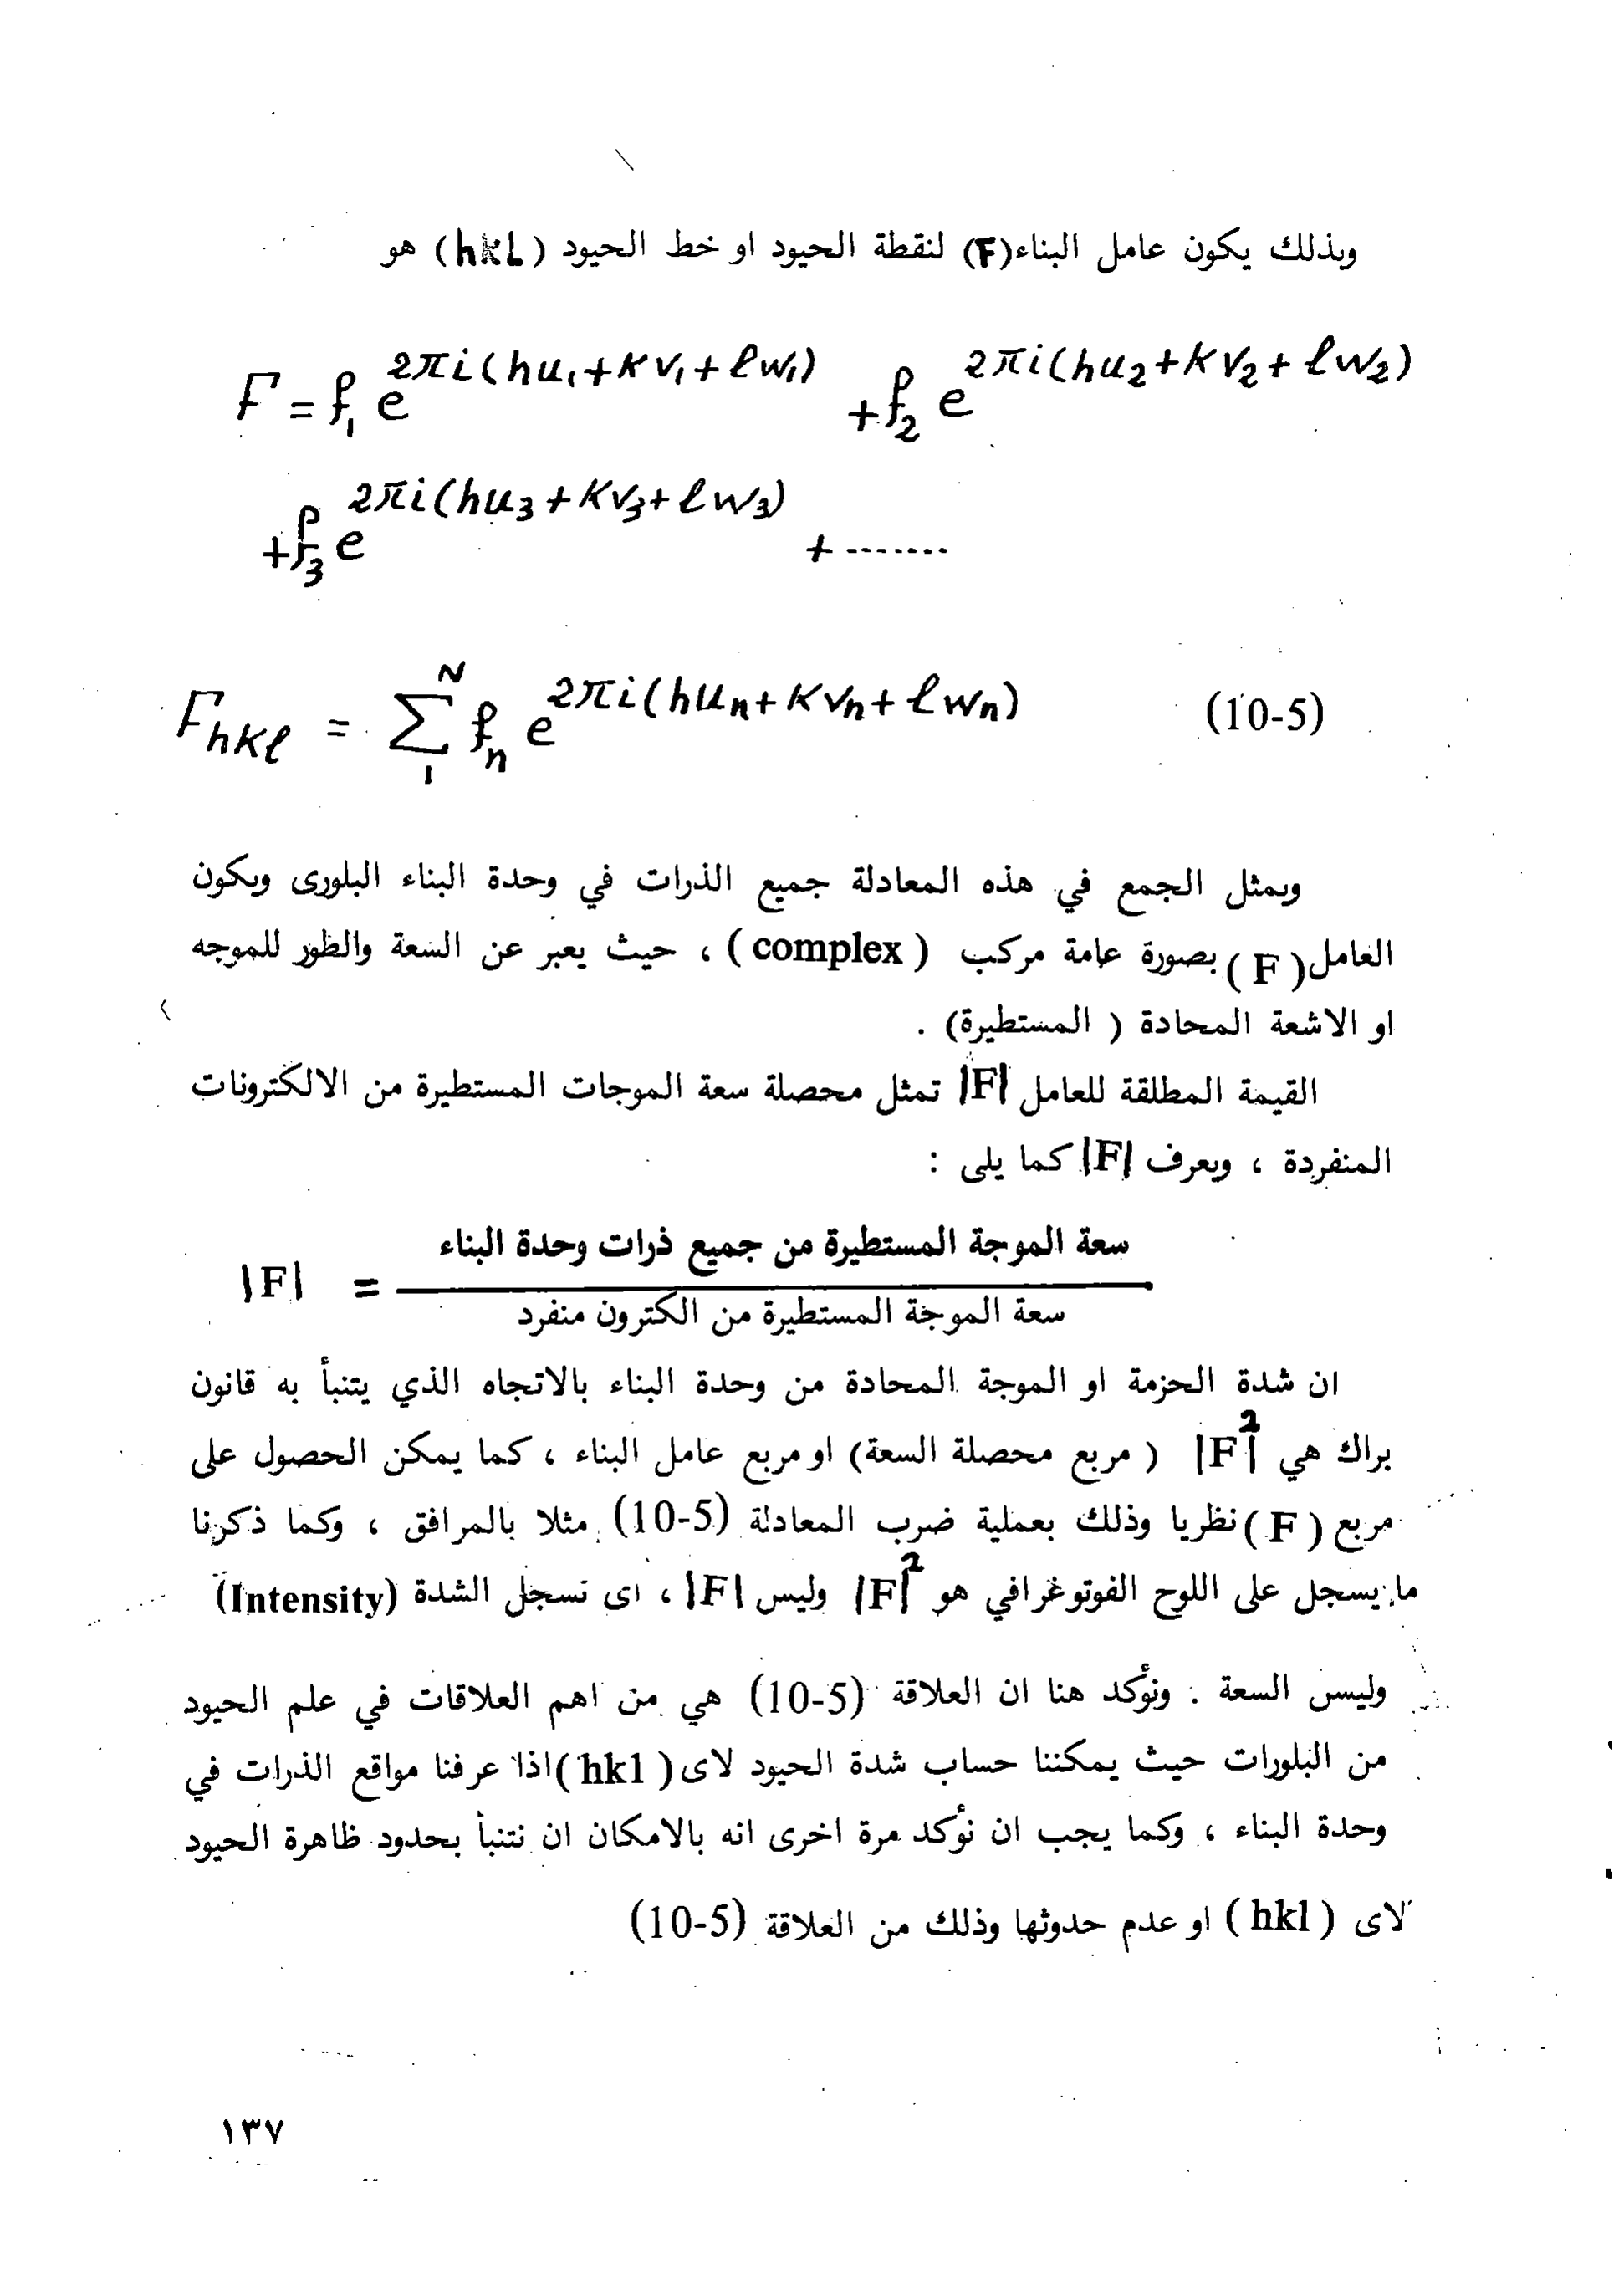 وبذلك يكون عامل البناء(F) لنقطة الحيود او خط الحيود (hkL) هو
F = f₁ e^{2πi(hu₁+kv₁+ℓw₁)} + f₂ e^{2πi(hu₂+kv₂+ℓw₂)}
+ f₃ e^{2πi(hu₃+kv₃+ℓw₃)} + ........
F_{hkℓ} = ∑_{1}^{N} f_n e^{2πi(hu_n+kv_n+ℓw_n)} (10-5)
ويمثل الجمع في هذه المعادلة جميع الذرات في وحدة البناء البلورى ويكون
العامل( F ) بصورة عامة مركب ( complex ) ، حيث يعبر عن السعة والطور للموجه
او الاشعة المحادة ( المستطيرة) .
القيمة المطلقة للعامل |F| تمثل محصلة سعة الموجات المستطيرة من الالكترونات
المنفردة ، ويعرف |F| كما يلى :
سعة الموجة المستطيرة من جميع ذرات وحدة البناء
|F| =
سعة الموجة المستطيرة من الكترون منفرد
ان شدة الحزمة او الموجة المحادة من وحدة البناء بالاتجاه الذي يتنبأ به قانون
براك هي |F|² ( مربع محصلة السعة) او مربع عامل البناء ، كما يمكن الحصول على
مربع ( F ) نظريا وذلك بعملية ضرب المعادلة (10-5) مثلا بالمرافق ، وكما ذكرنا
ما يسجل على اللوح الفوتوغرافي هو |F|² وليس |F| ، اى تسجل الشدة (Intensity)
وليس السعة . ونؤكد هنا ان العلاقة (10-5) هي من اهم العلاقات في علم الحيود
من البلورات حيث يمكننا حساب شدة الحيود لاى ( hkl ) اذا عرفنا مواقع الذرات في
وحدة البناء ، وكما يجب ان نؤكد مرة اخرى انه بالامكان ان نتنبأ بحدود ظاهرة الحيود
لاى ( hkl ) او عدم حدوثها وذلك من العلاقة (10-5)
١٣٧